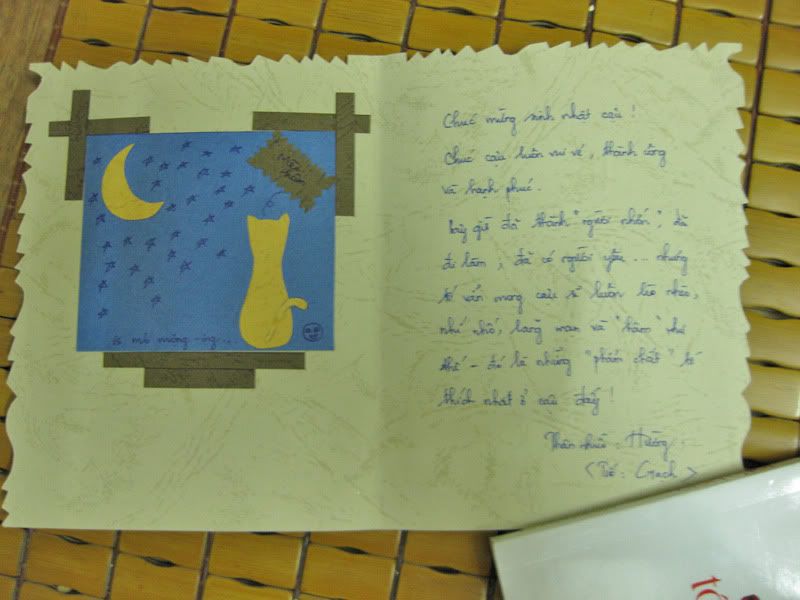 is mơ màng -ing...
Chúc mừng sinh nhật cậu !
Chúc cậu luôn vui vẻ, thành công
và hạnh phúc.
Bây giờ đã thành "người nhớn", đã
đi làm, đã có người yêu... nhưng
tớ vẫn mong cậu sẽ luôn lão nhão,
nhí nhố, lãng mạn và "hâm" như
thế - đó là những "phẩm chất" tớ
thích nhất ở cậu đấy !
Thân nhiều. Hường.